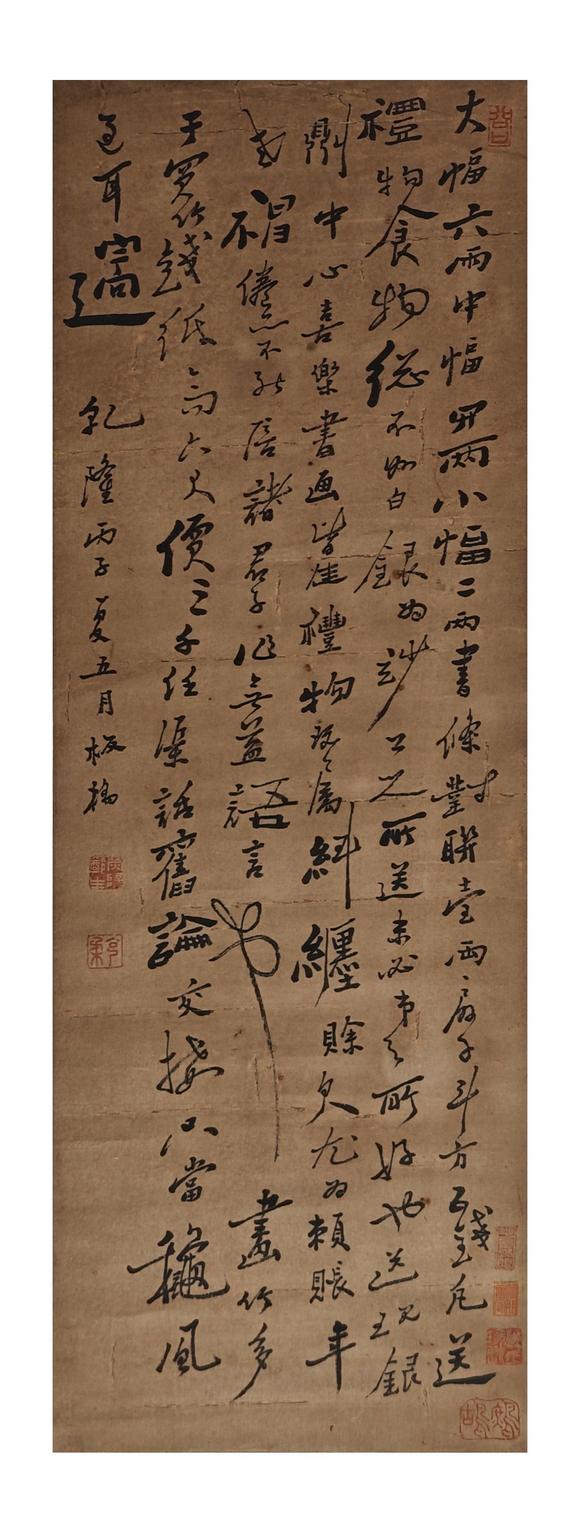 大幅六兩中幅四兩小幅二兩書條對聯壹兩扇子斗方五錢凡送
禮物食物総不如白銀為妙公之所送未必弟之所好也送現銀
則中心喜樂書画皆佳禮物既属糾纏賒欠尤為賴賬年
老體倦亦不能陪諸君子作無益語言也畫竹多
于買竹錢紙高六尺價三千任渠話舊論交接只當龝風
過耳邊
乾隆丙子夏五月板橋
克柔